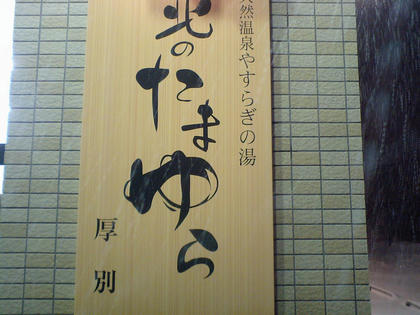 天然温泉やすらぎの湯
北のたまゆら
厚別